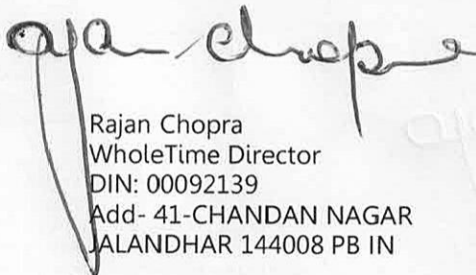 Rajan Chopra
Rajan Chopra
WholeTime Director
DIN: 00092139
Add- 41-CHANDAN NAGAR
JALANDHAR 144008 PB IN